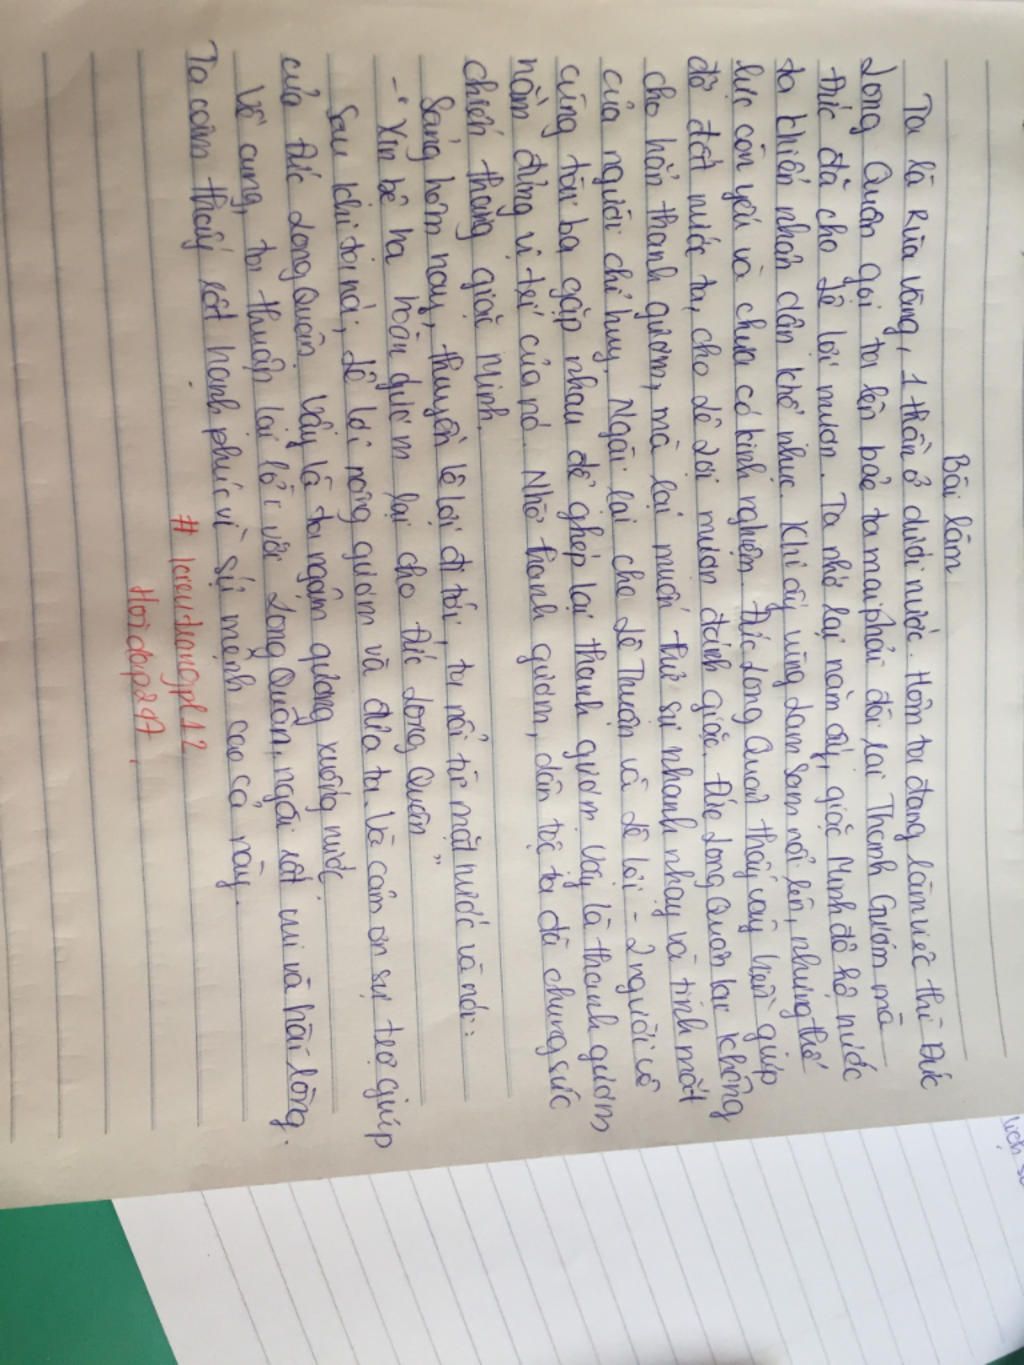 Bài làm
Ta là Rùa Vàng, 1 thần ở dưới nước. Hôm ta đang làm việc thì Đức
Long Quân gọi ta lên bảo ta mai phải đòi lại Thanh Gươm mà
Đức đã cho Lê Lợi mượn. Ta nhớ lại năm ấy, giặc Minh đô hộ nước
ta khiến nhân dân khổ nhục. Khi ấy vùng Lam Sam nổi lên, nhưng thế
lực còn yếu và chưa có kinh nghiệm. Đức Long Quân thấy vậy liền giúp
đỡ đất nước ta, cho Lê Lợi mượn đánh giặc. Đức Long Quân lại không
cho hẳn thanh gươm, mà lại muốn thử sự nhanh nhạy và tinh mắt
của người chỉ huy. Ngài lại cho Lê Thuận và Lê Lợi - 2 người vô
cùng tài ba gặp nhau để ghép lại thanh gươm. Vậy là thanh gươm
nằm đúng vị trí của nó. Nhờ thanh gươm, dân tộc ta đã chung sức
chiến thắng giặc Minh.
Sáng hôm nay, thuyền Lê Lợi đi tới, ta nổi từ mặt nước và nói:
- "Xin bệ hạ hoàn gươm lại cho Đức Long Quân"
Sau khi ta nói, Lê Lợi nâng gươm và đưa ta. Và cảm ơn sự trợ giúp
của Đức Long Quân. Vậy là ta ngậm gương xuống nước
Về cung, ta thuận lại lời với Long Quân, ngài rất vui và hài lòng.
Ta cảm thấy rất hạnh phúc vì sự mệnh cao cả này.
# icreutrangpl12
Hoidap247
lịch sử